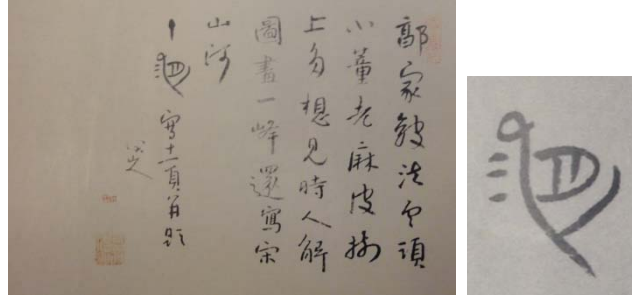 郭家皴法雲頭
小董老麻皮樹
上多想見時人解
圖畫一峰還寫宋
山河
寫十一頁 題
八大山人